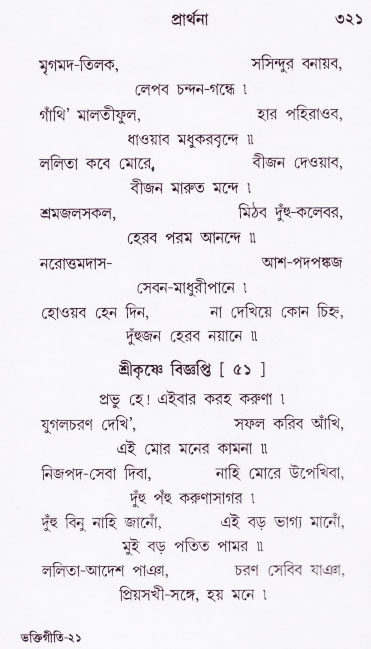 প্রার্থনা ৩২১
মৃগমদ-তিলক, সসিন্দুর বনায়ব,
লেপব চন্দন-গন্ধে ৷
গাঁথি' মালতীফুল, হার পহিরাওব,
ধাওয়াব মধুকরবৃন্দে ॥
ললিতা কবে মোরে, বীজন দেওয়াব,
বীজন মারুত মন্দে ৷
শ্রমজলসকল, মিঠব দুঁহু-কলেবর,
হেরব পরম আনন্দে ॥
নরোত্তমদাস- আশ-পদপঙ্কজ
সেবন-মাধুরীপানে ৷
হোওয়ব হেন দিন, না দেখিয়ে কোন চিহ্ন,
দুঁহুজন হেরব নয়ানে ॥
শ্রীকৃষ্ণে বিজ্ঞপ্তি [ ৫১ ]
প্রভু হে! এইবার করহ করুণা ৷
যুগলচরণ দেখি', সফল করিব আঁখি,
এই মোর মনের কামনা ॥
নিজপদ-সেবা দিবা, নাহি মোরে উপেখিবা,
দুঁহু পঁহু করুণাসাগর ৷
দুঁহু বিনু নাহি জানোঁ, এই বড় ভাগ্য মানোঁ,
মুই বড় পতিত পামর ॥
ললিতা-আদেশ পাঞা, চরণ সেবিব যাঞা,
প্রিয়সখী-সঙ্গে, হয় মনে ৷
ভক্তিগীতি-২১